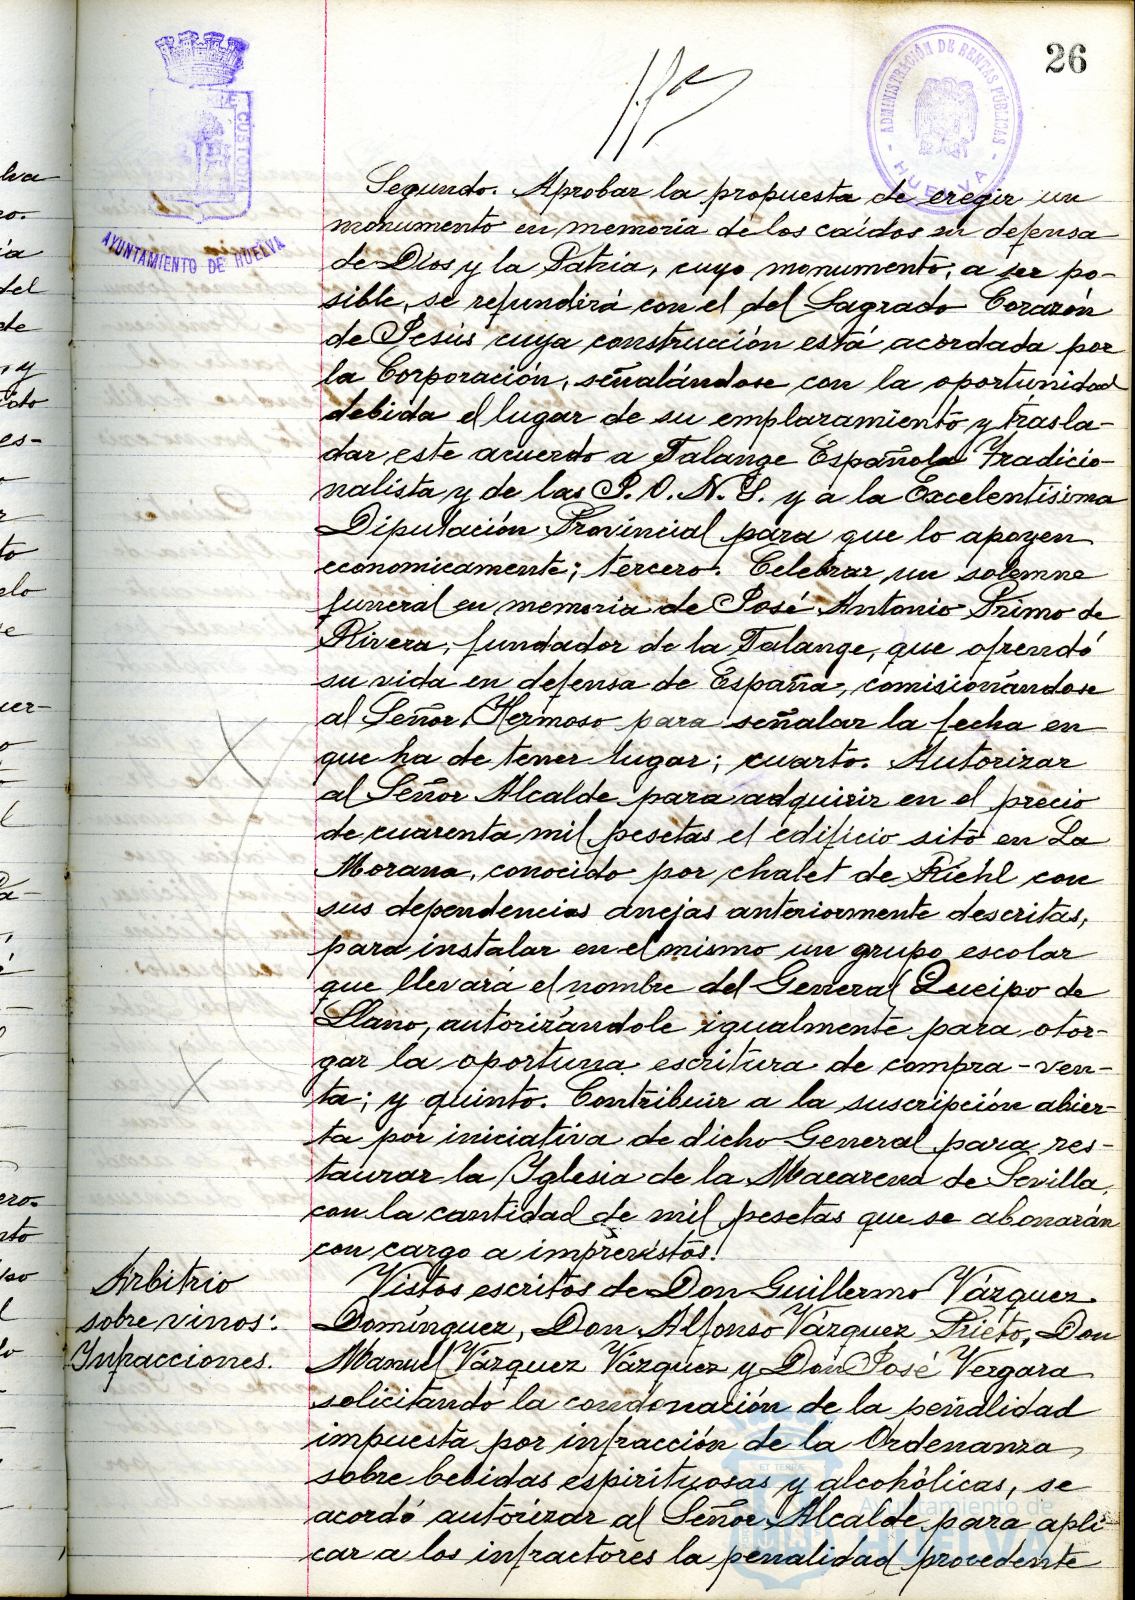 26
CUSTO
AYUNTAMIENTO DE HUELVA
ADMINISTRACIÓN DE RENTAS PÚBLICAS
HUELVA
Segundo. Aprobar la propuesta de eregir un
monumento en memoria de los caídos en defensa
de Dios y la Patria, cuyo monumento, a ser po-
sible, se refundirá con el del Sagrado Corazón
de Jesús cuya construcción está acordada por
la Corporación, señalándose con la oportunidad
debida el lugar de su emplazamiento y trasla-
dar este acuerdo a Falange Española Tradicio-
nalista y de las J.O.N.S. y a la Excelentísima
Diputación Provincial para que lo apoyen
economicamente; tercero. Celebrar un solemne
funeral en memoria de José Antonio Primo de
Rivera, fundador de la Falange, que ofrendó
su vida en defensa de España, comisionándose
al Señor Hermoso para señalar la fecha en
que ha de tener lugar; cuarto. Autorizar
al Señor Alcalde para adquirir en el precio
de cuarenta mil pesetas el edificio sito en La
Morana, conocido por chalet de Riehl con
sus dependencias anejas anteriormente descritas,
para instalar en el mismo un grupo escolar
que llevará el nombre del General Queipo de
Llano, autorizándole igualmente para otor-
gar la oportuna escritura de compra-ven-
ta; y quinto. Contribuir a la suscripción abier-
ta por iniciativa de dicho General para res-
taurar la Iglesia de la Macarena de Sevilla,
con la cantidad de mil pesetas que se abonarán
con cargo a imprevistos.
Arbitrio
sobre vinos:
Infracciones.
Vistos escritos de Don Guillermo Vázquez
Domínguez, Don Alfonso Vázquez Prieto, Don
Manuel Vázquez Vázquez y Don José Vergara
solicitando la condonación de la penalidad
impuesta por infracción de la Ordenanza
sobre bebidas espirituosas y alcohólicas, se
acordó autorizar al Señor Alcalde para apli-
car a los infractores la penalidad procedente
Ayuntamiento de
HUELVA